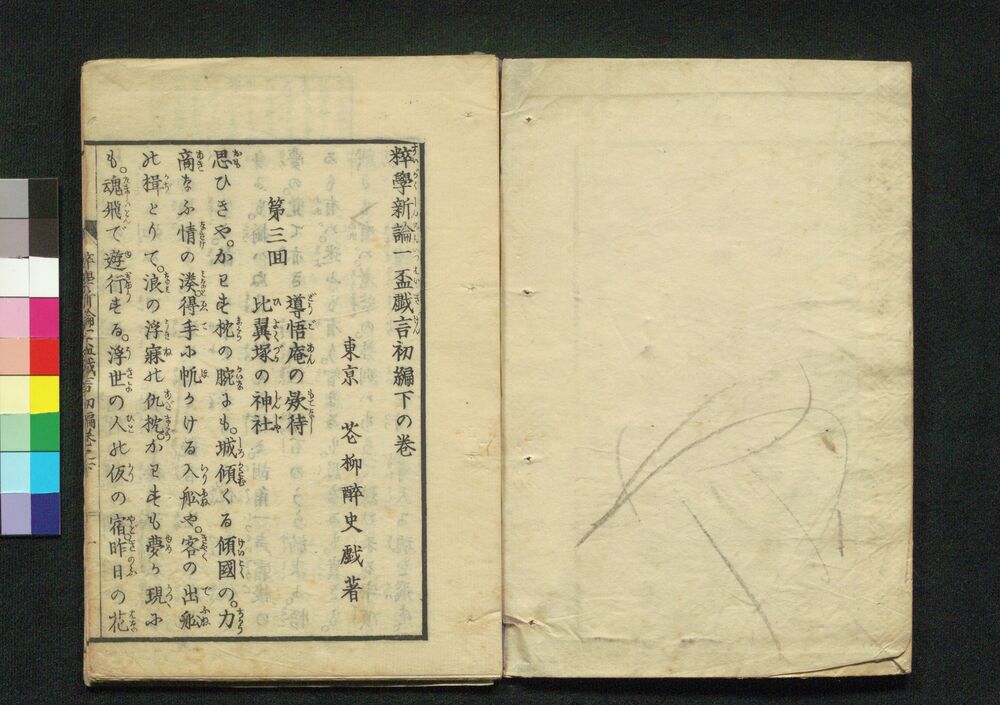 粹學新論一盃戯言初編下の巻
東京　花柳醉史戯著
導悟庵の欵待
第三回
比翼塚の神社
思ひきや。かはす枕の腕にも。城傾くる傾國の。力
商なふ情の湊得手に帆かける入舩や。客の出舩
の揖とりて。浪の浮寐の仇枕。かはすも夢か現に
も。魂飛で遊行する。浮世の人の仮の宿。昨日の花
粹學新論一盃戯言初編巻之下
一